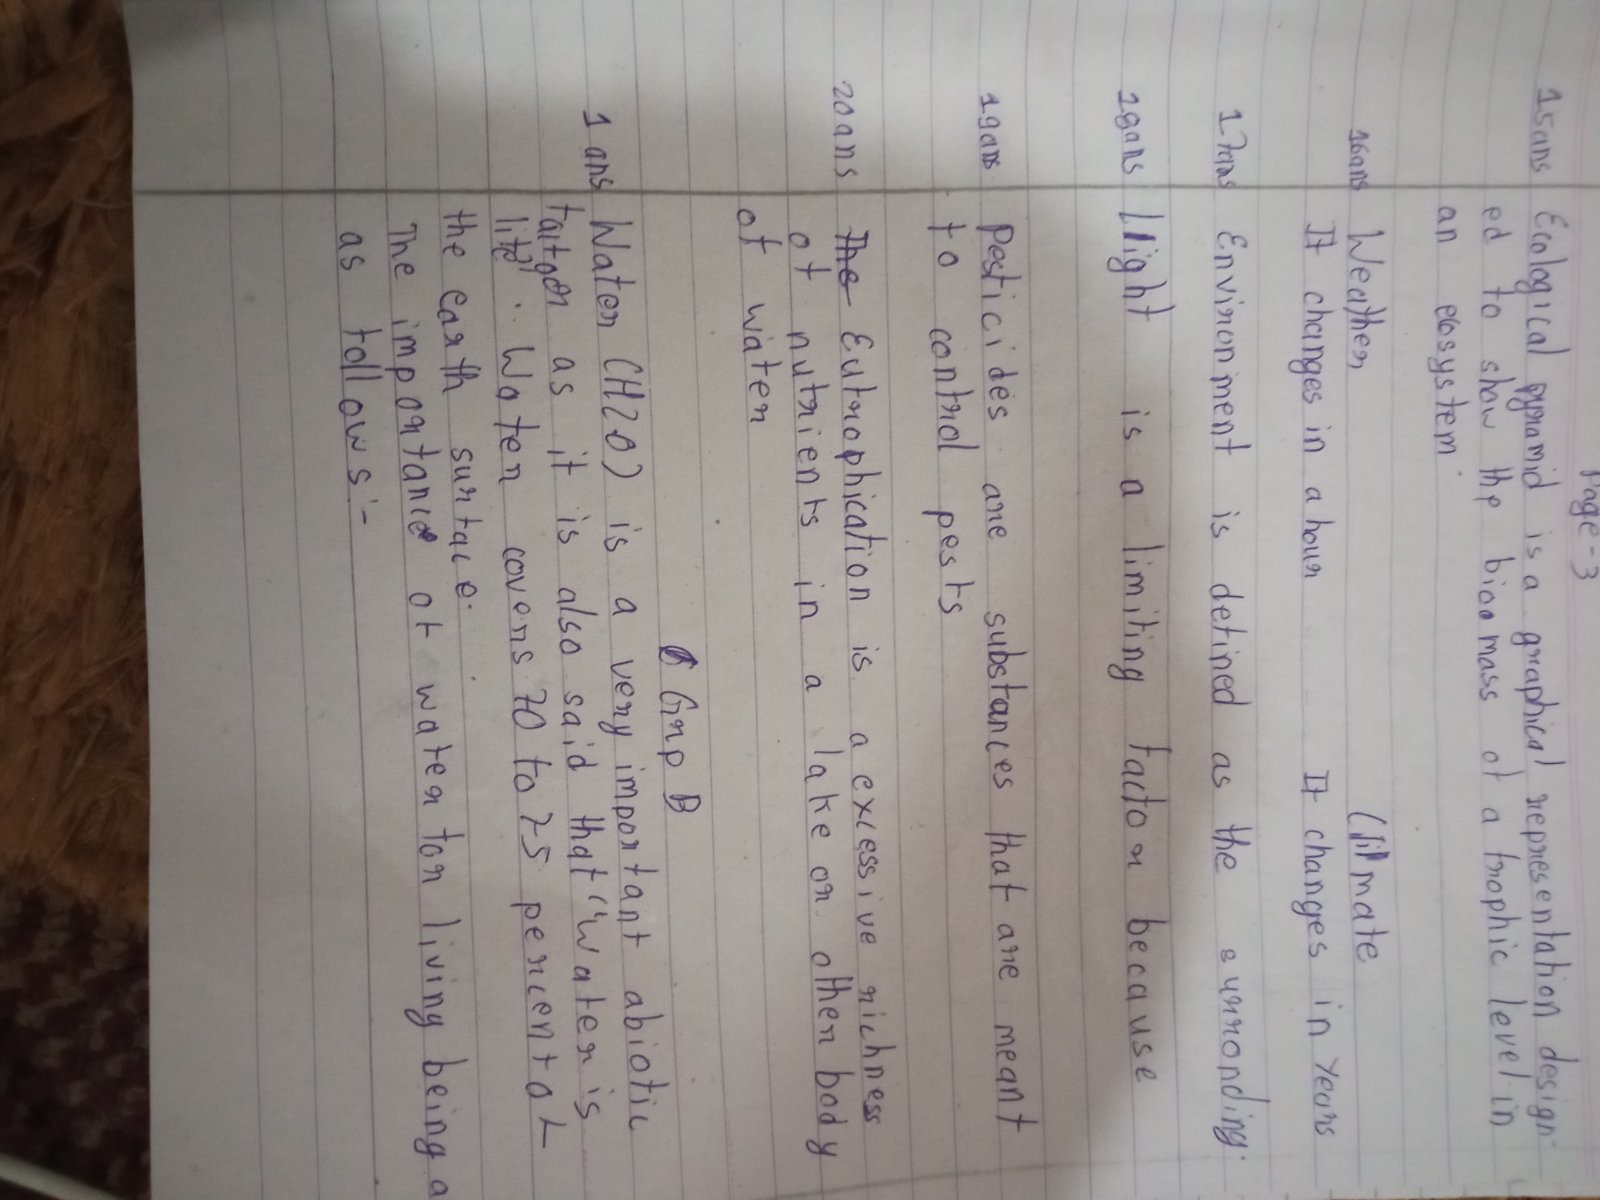 Page-3
15ans Ecological pyramid is a graphical representation design-
ed to show the biomass of a trophic level in
an ecosystem.
16ans Weather Climate
It changes in a hour It changes in Years
17ans Environment is defined as the surronding.
18ans Light is a limiting factor because
19ans Pesticides are substances that are meant
to control pests
20ans The Eutrophication is a excessive richness
of nutrients in a lake or other body
of water
Grp B
1 ans Water (H2O) is a very important abiotic
factor as it is also said that "Water is
life". Water covers 70 to 75 percent of
the earth surface.
The importance of water for living being a
as follows:-